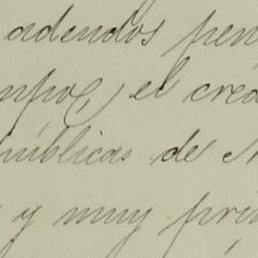 adendos pen
mpo, el créd
públicas de
y muy pri